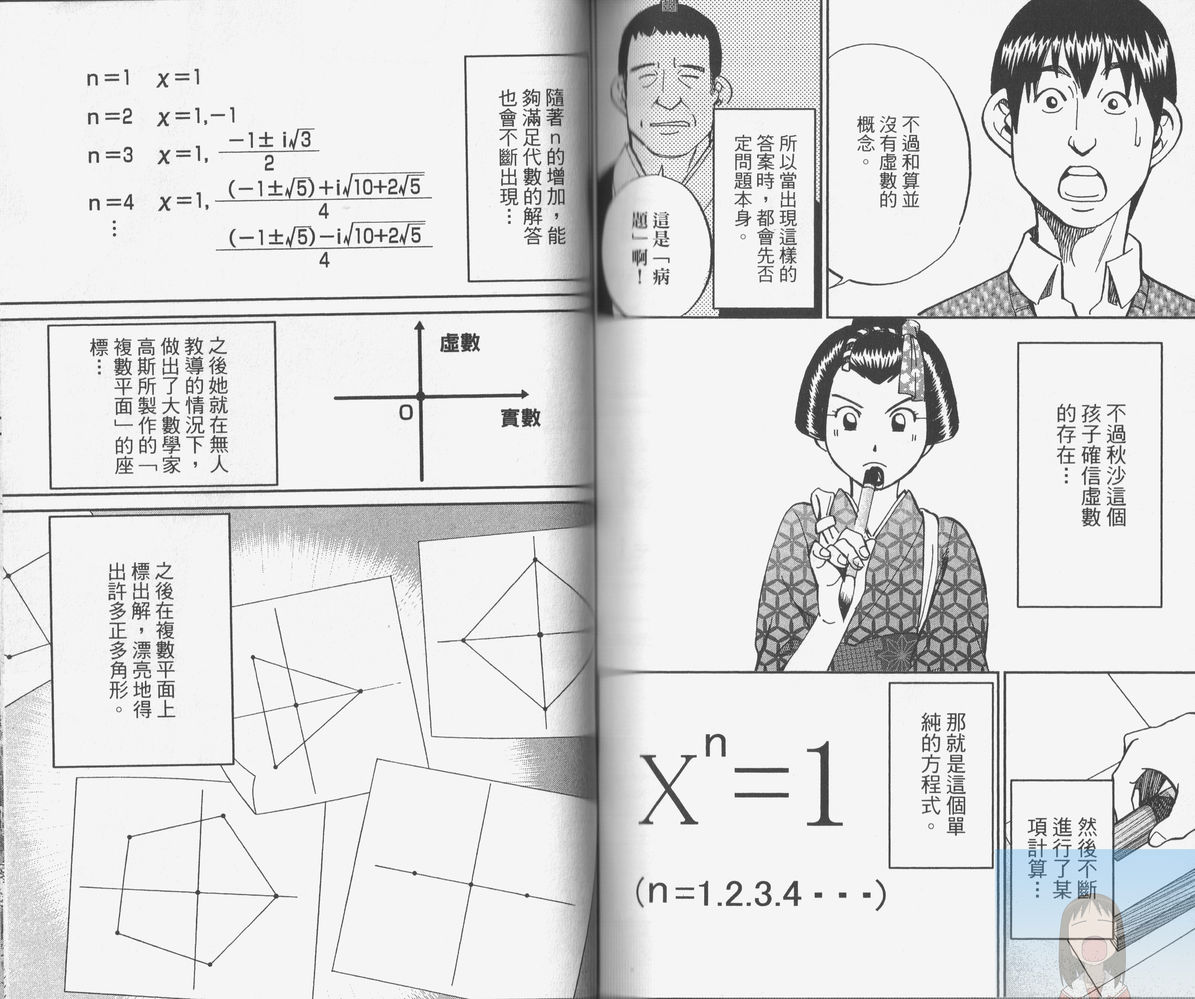 不過和算並
沒有虛數的
概念。
所以當出現這樣的
答案時，都會先否
定問題本身。
這是「病
題」啊！
不過秋沙這個
孩子確信虛數
的存在…
然後不斷
進行了某
項計算…
那就是這個單
純的方程式。
xⁿ=1
(n=1.2.3.4・・・)
隨著n的增加，能
夠滿足代數的解答
也會不斷出現…
n=1 x=1
n=2 x=1,-1
n=3 x=1, (-1± i√3)/2
n=4 x=1, ((-1±√5)+i√10+2√5)/4
((-1±√5)-i√10+2√5)/4
⋮
虛數
O
實數
之後她就在無人
教導的情況下，
做出了大數學家
高斯所製作的「
複數平面」的座
標…
之後在複數平面上
標出解，漂亮地得
出許多正多角形。